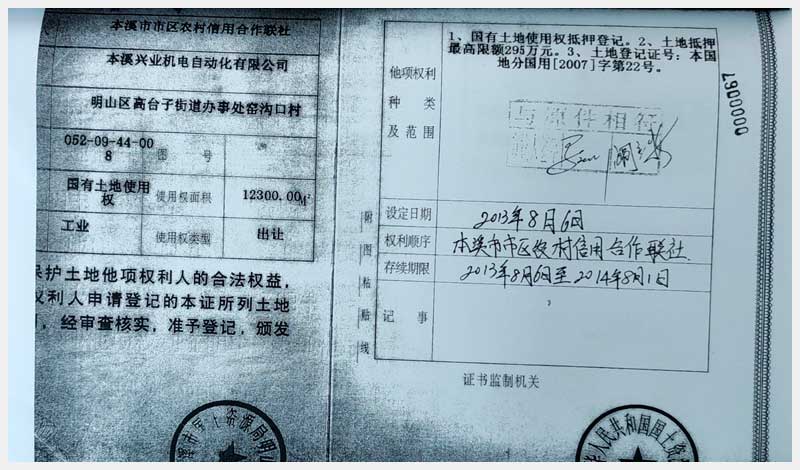 本溪市市区农村信用合作联社
本溪兴业机电自动化有限公司
明山区高台子街道办事处窑沟口村
052-09-44-00
8
图 号
国有土地使用
权
使用权面积
12300.00㎡
工业
使用权类型
出让
保护土地他项权利人的合法权益，
权利人申请登记的本证所列土地
，经审查核实，准予登记，颁发
1、国有土地使用权抵押登记。2、土地抵押
最高限额295万元。3、土地登记证号：本国
地分国用[2007]字第22号。
他项权利
种 类
及范围
与原件相符
0000067
设定日期
2013年8月6日
权利顺序
本溪市市区农村信用合作联社
存续期限
2013年8月6日至2014年8月1日
记 事
附图粘贴线
证书监制机关
溪市国土资源局明山
华人民共和国国土资